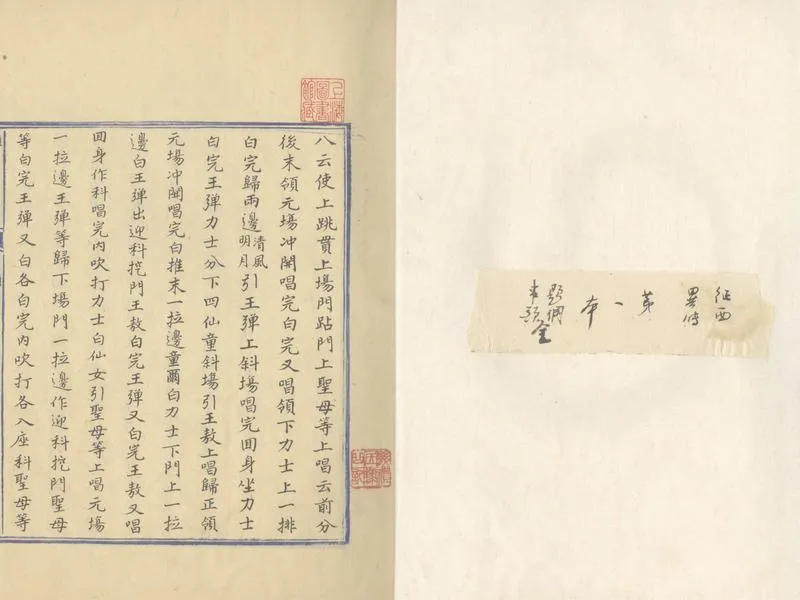 征西
異傳
第一本
題綱
串頭
全
上海
圖書
館藏
八云使上跳貫上場門跕門上聖母等上唱云前分
後末領元場冲開唱完白完又唱領下力士上一排
白完歸兩邊清風明月引王弹上斜場唱完囬身坐力士
白完王弹力士分下四仙童斜場引王敖上唱歸正領
元場冲開唱完白推末一拉邊童爾白力士下門上一拉
邊白王弹出迎科挖門王敖白完王弹又白完王敖又唱
囬身作科唱完内吹打力士白仙女引聖母等上唱元場
一拉邊王弹等歸下場門一拉邊作迎科挖門聖母
等白完王弹又白各白完内吹打各入座科聖母等